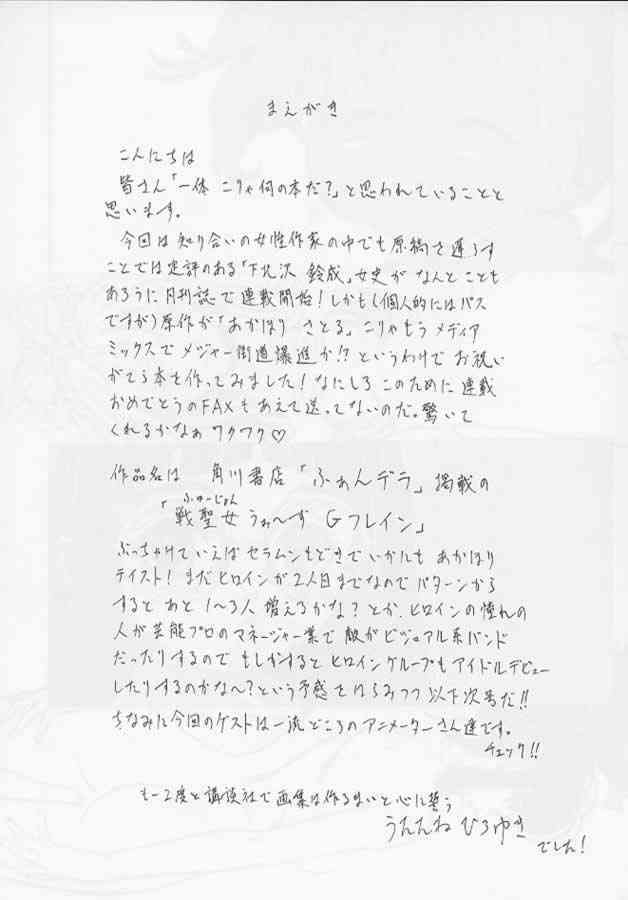 まえがき
こんにちは
皆さん「一体 こりゃ何の本だ？」と思われていることと
思います。
今回は知り合いの女性作家の中でも原稿を遅らす
ことでは定評のある「下北沢 鈴成」女史が なんと ことも
あろうに月刊誌で連載開始！しかも（個人的にはパス
ですが）原作が「あかほり さとる」こりゃもう メディア
ミックスでメジャー街道爆進か!? というわけで お祝い
がてら本を作ってみました！なにしろ このために 連載
おめでとうのFAXも あえて送ってないのだ。驚いて
くれるかなぁ ワクワク♡
作品名は 角川書店「ふぁんデラ」掲載の
ふゅーじょん
「戦聖女 うぉ〜ず Gフレイン」
ぶっちゃけていえば セラムンもどきで いかにも あかほり
テイスト！まだヒロインが2人目までなので パターンから
すると あと 1〜3人 増えるかな？ とか、ヒロインの憧れの
人が芸能プロのマネージャー業で 敵がビジュアル系バンド
だったりするので もしかすると ヒロイングループもアイドルデビュー
したりするのかな〜？という予感をはらみつつ 以下次号だ!!
ちなみに今回のゲストは一流どころのアニメーターさん達です。
チェック!!
もー2度と講談社で画集は作るまいと心に誓う
うたたね ひろゆき
でした！